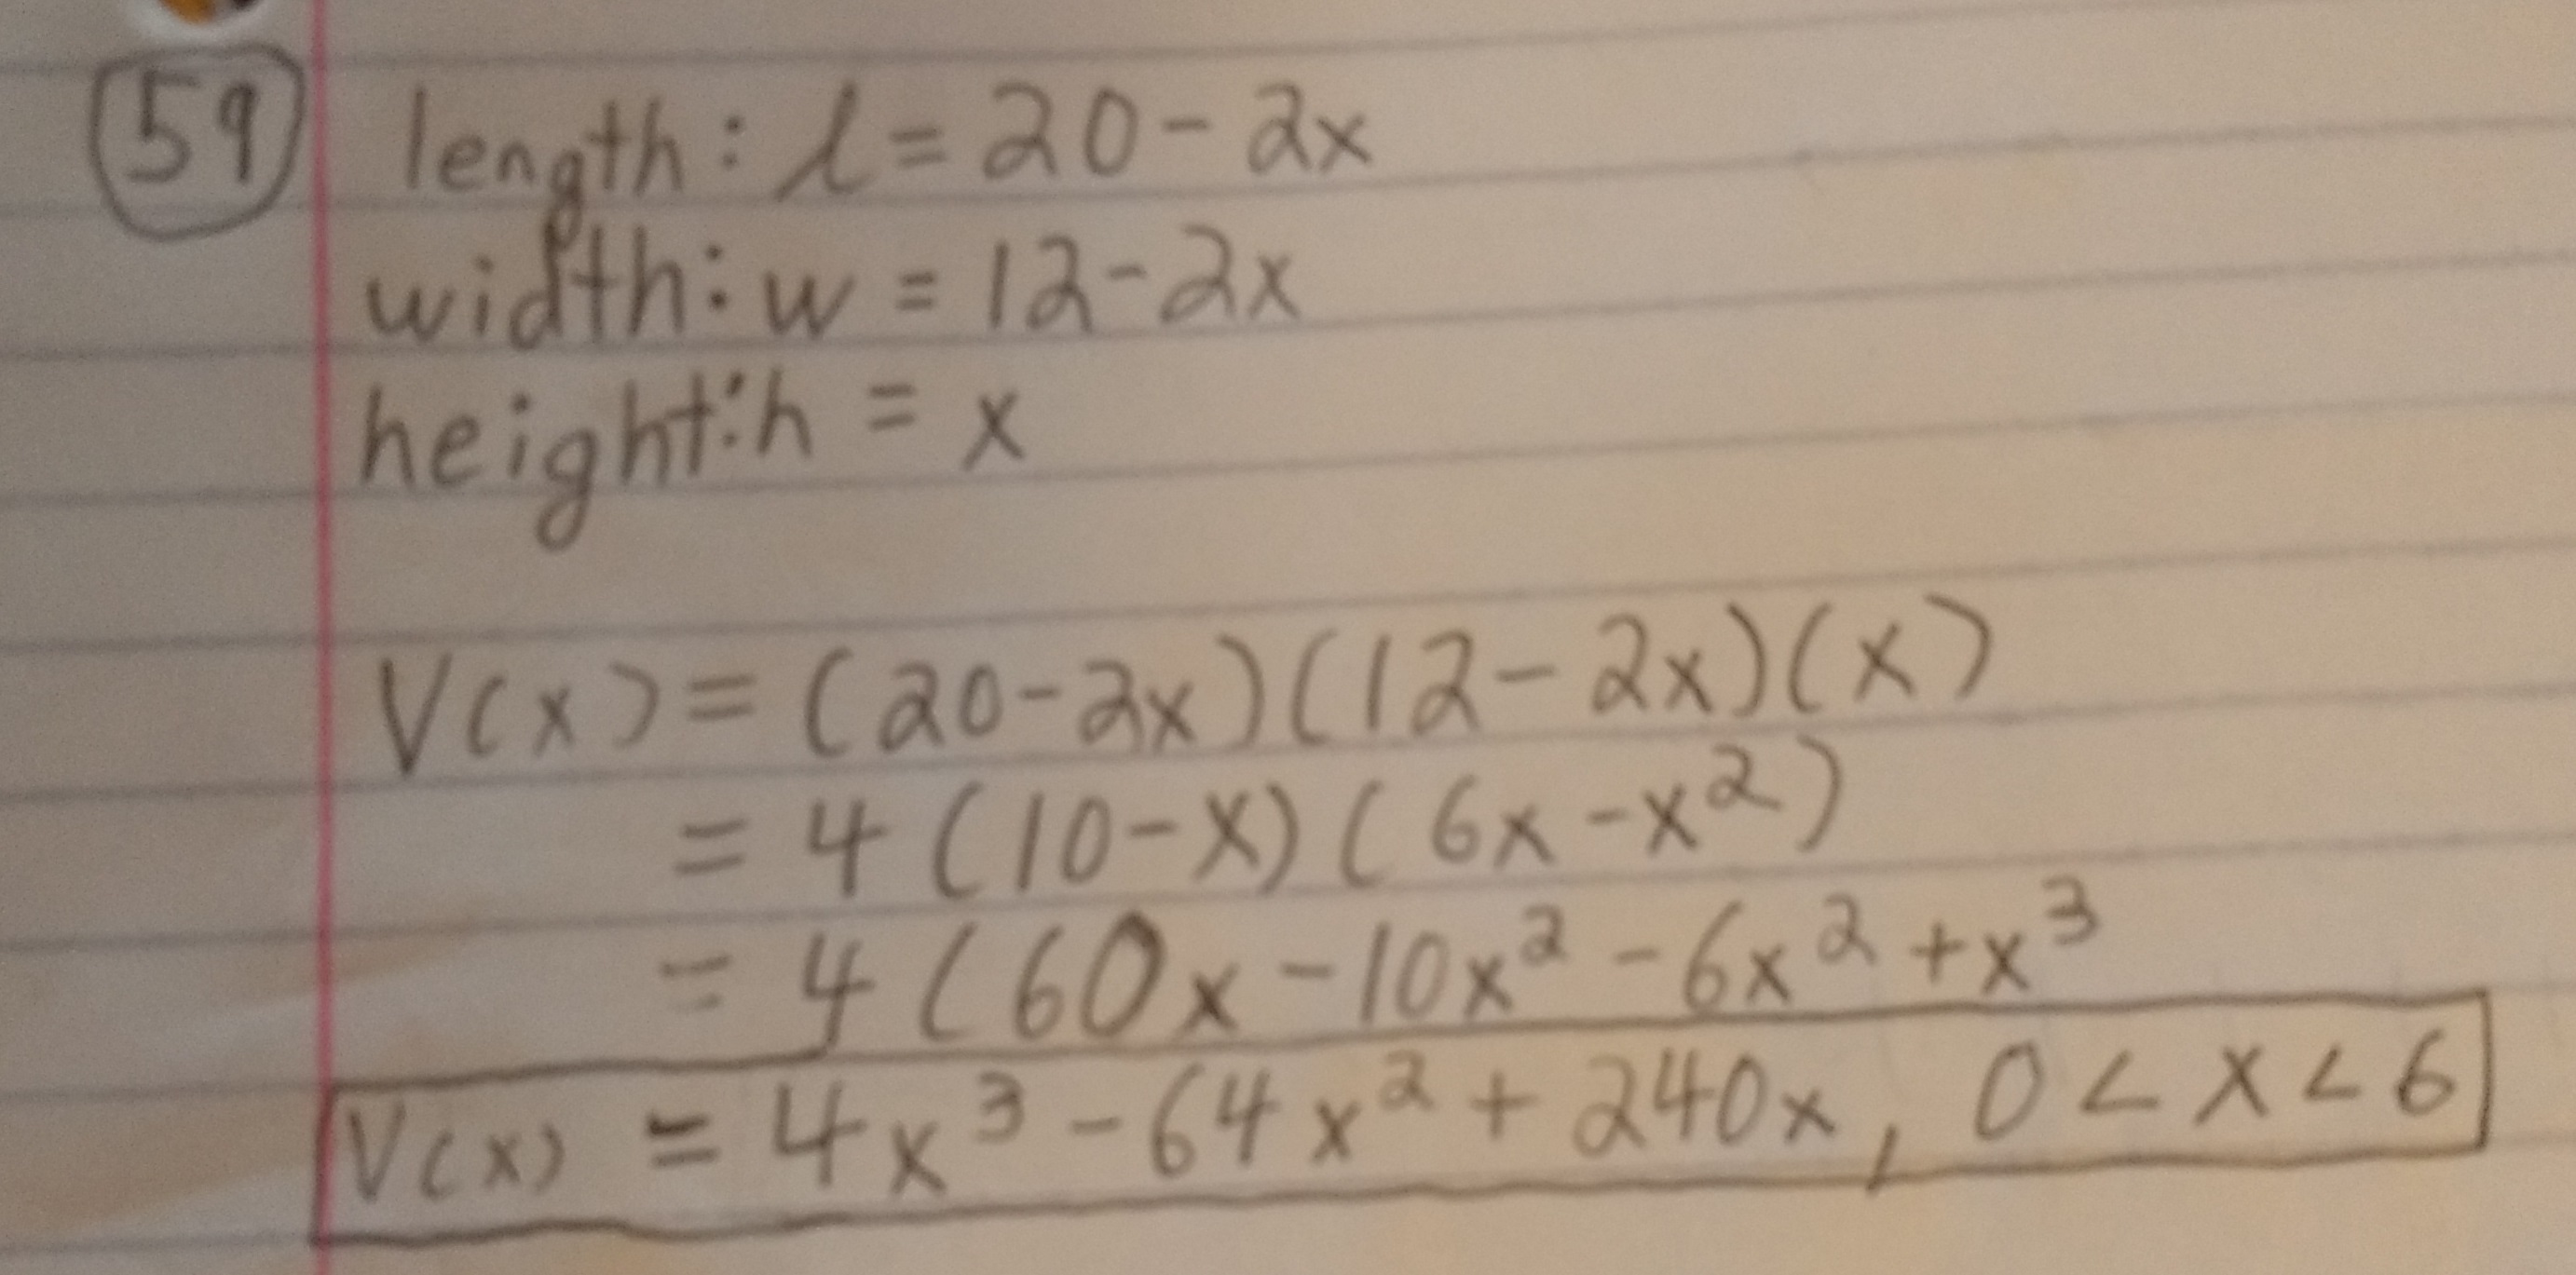 59 length: l = 20 - 2x
width: w = 12 - 2x
height: h = x
V(x) = (20 - 2x)(12 - 2x)(x)
= 4(10 - x)(6x - x²)
= 4(60x - 10x² - 6x² + x³
V(x) = 4x³ - 64x² + 240x, 0 < x < 6